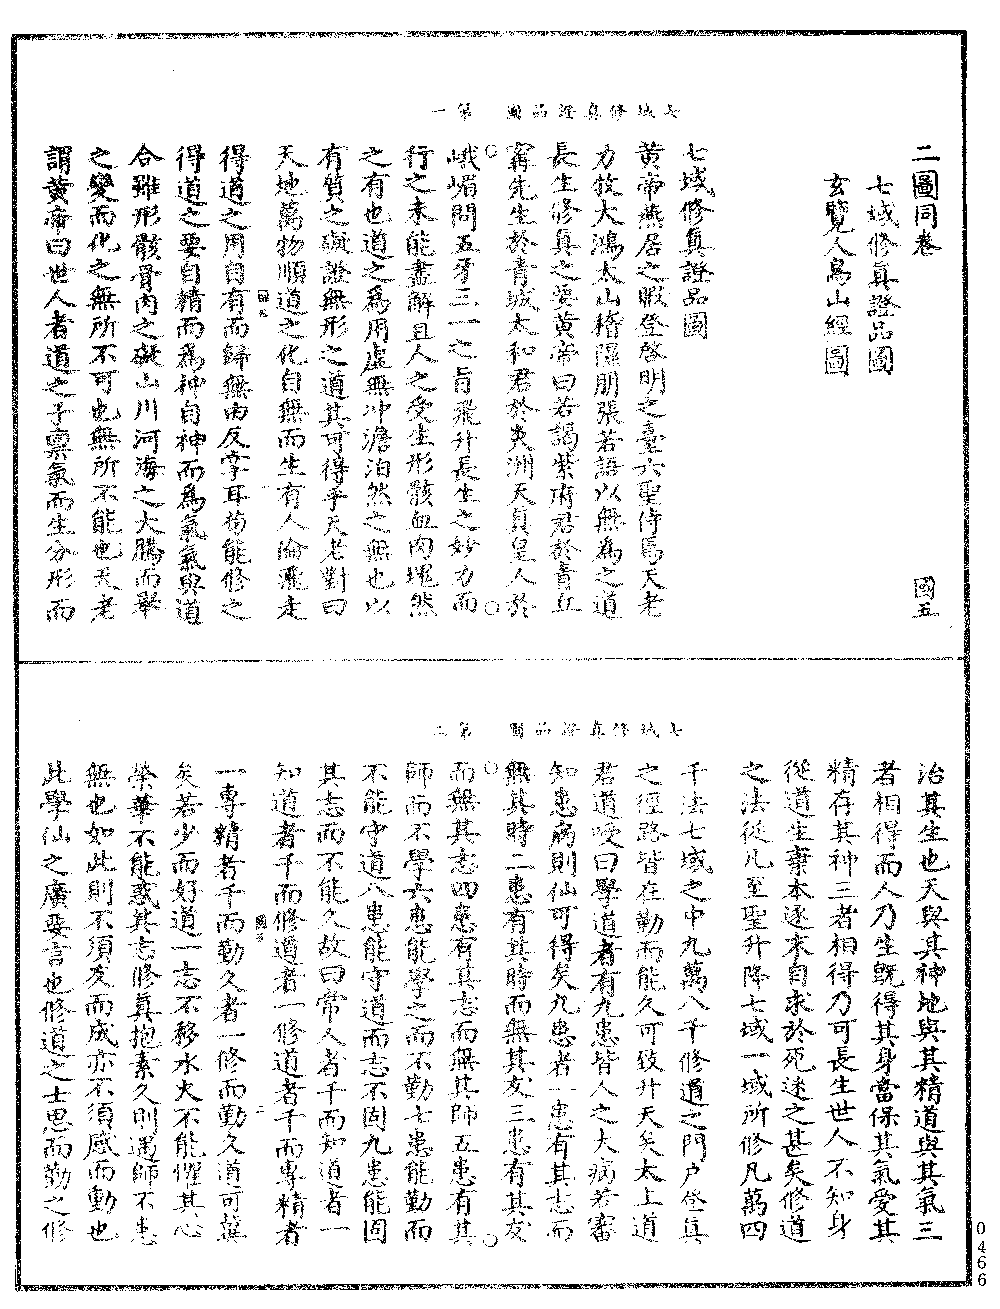 二圖同卷　國五
七域修真證品圖
玄覽人鳥山經圖
七域修真證品圖　第一
七域修真證品圖
黃帝燕居之暇登啓明之臺六聖侍焉天老
力牧大鴻太山稽隰朋張若語以無為之道
長生修真之要黃帝曰若謁紫府君於青丘
甯先生於青城太和君於炎洲天真皇人於
峨嵋問五牙三一之旨飛升長生之妙力而
行之未能盡解且人之受生形骸血肉塊然
之有也道之為用虛無冲澹泊然之無也以
有質之礙證無形之道其可得乎天老對曰
天地萬物順道之化自無而生有人淪流走
得道之用自有而歸無由反掌耳苟能修之
得道之要自精而為神自神而為氣氣與道
合雖形骸骨肉之礙山川河海之大騰而舉
之變而化之無所不可也無所不能也天老
謂黃帝曰世人者道之子稟氣而生分形而
七域修真證品圖　第二
治其生也天與其神地與其精道與其氣三
者相得而人乃生既得其身當保其氣愛其
精存其神三者相得乃可長生世人不知身
從道生棄本逐末自求於死迷之甚矣修道
之法從凡至聖升降七域一域所修凡萬四
千法七域之中九萬八千修道之門戶登真
之徑路皆在勤而能久可致升天矣太上道
君道唆曰學道者有九患皆人之大病若審
知患病則仙可得矣九患者一患有其志而
無其時二患有其時而無其友三患有其友
而無其志四患有其志而無其師五患有其
師而不學六患能學之而不勤七患能勤而
不能守道八患能守道而志不固九患能固
其志而不能久故曰常人者千而知道者一
知道者千而修道者一修道者千而專精者
一專精者千而勤久者一修而勤久道可冀
矣若少而好道一志不移水火不能懼其心
榮華不能惑其志修真抱素久則遇師不患
無也如此則不須友而成亦不須感而動也
此學仙之廣要言也修道之士思而勤之修
0466